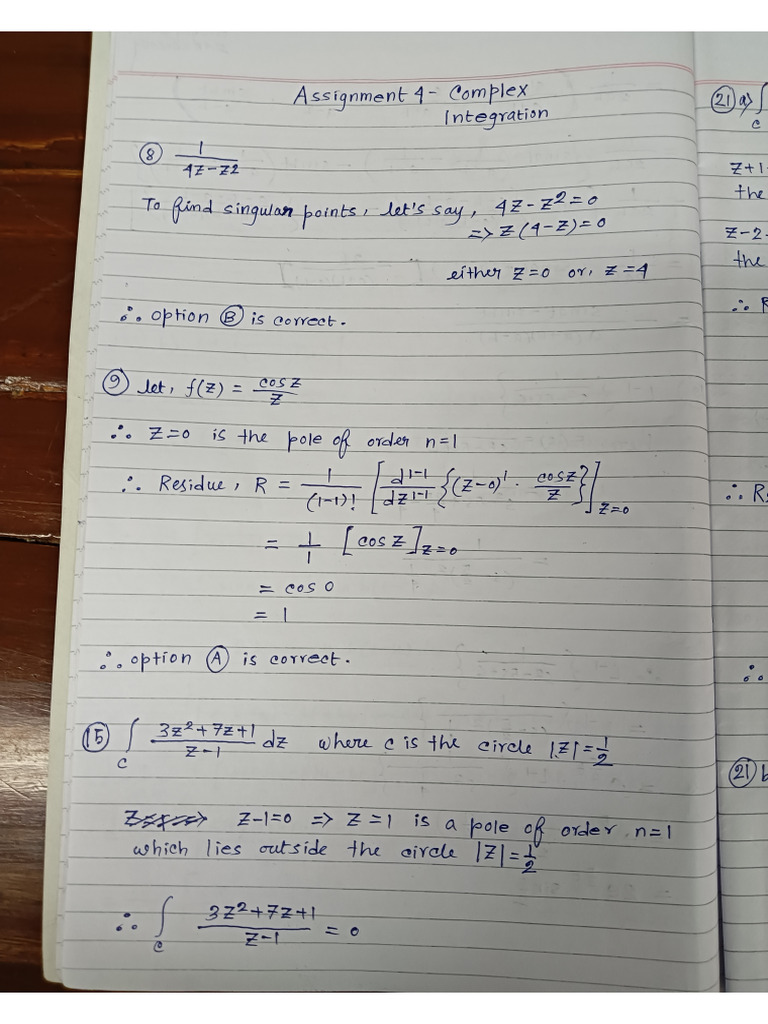 Assignment 4 - Complex
Integration
⑧ 1/(4z-z2)
To find singular points, let's say, 4z-z²=0
=> z(4-z)=0
either z=0 or, z=4
∴ option Ⓑ is correct.
⑨ let, f(z) = cosz/z
∴ z=0 is the pole of order n=1
∴ Residue, R = 1/(1-1)! [d¹⁻¹/dz¹⁻¹ {(z-0)¹ · cosz/z}]z=0
= 1/1 [cosz]z=0
= cos 0
= 1
∴ option Ⓐ is correct.
⑮ ∫c (3z²+7z+1)/(z-1) dz where c is the circle |z|=1/2
z-1=0 => z=1 is a pole of order n=1
which lies outside the circle |z|=1/2
∴ ∫c (3z²+7z+1)/(z-1) = 0
㉑ a) ∫
c
z+1
the
z-2
the
∴ R
∴ R
∴
㉑ b